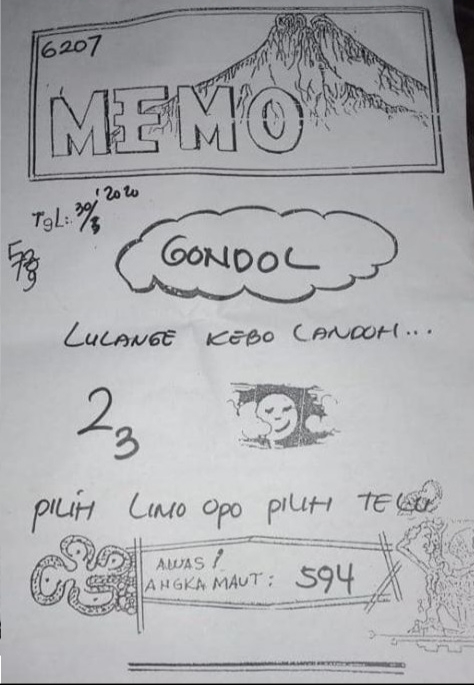 6207
MEMO
TGL: 30/3 '2020
GONDOL
LULANGE KEBO LANDOH...
2 3
PILIH LIMO OPO PILIH TELU
AWAS!
ANGKA MAUT: 594